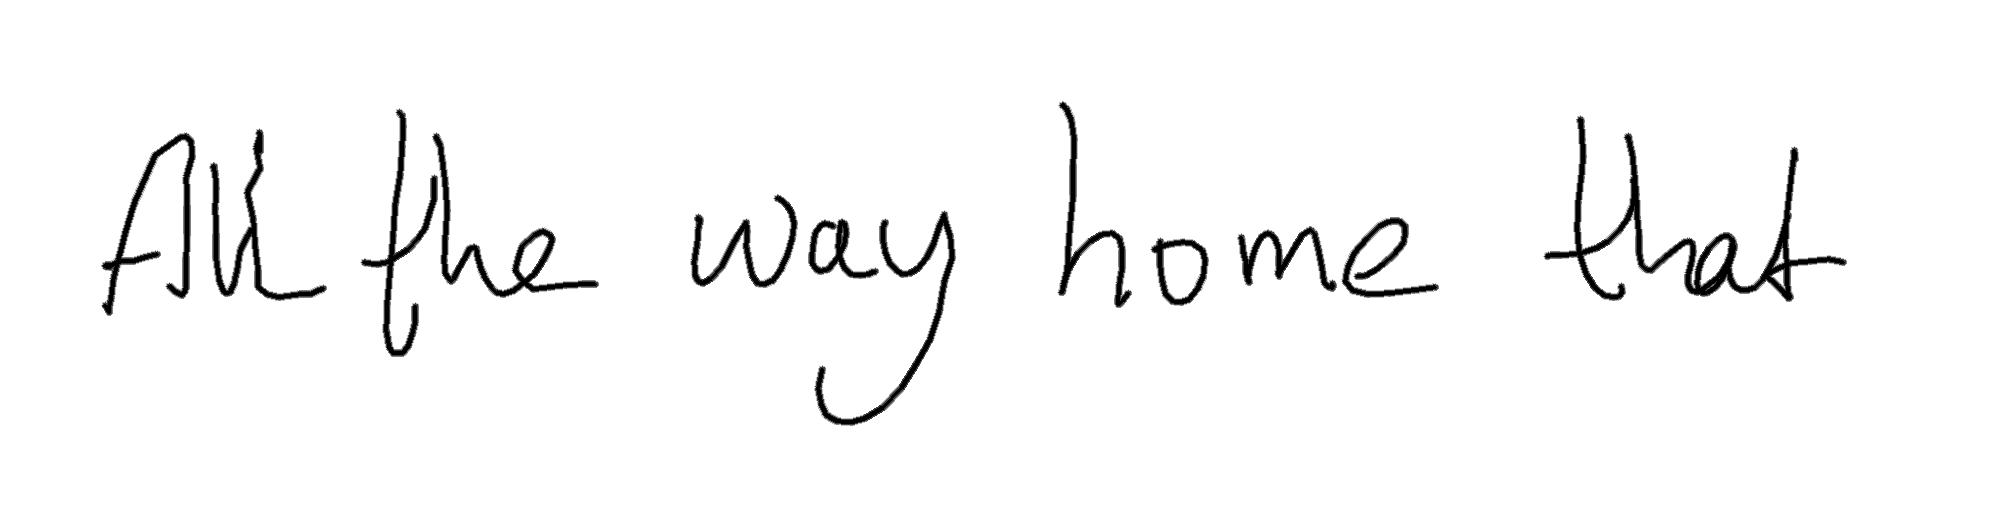 All the way home that